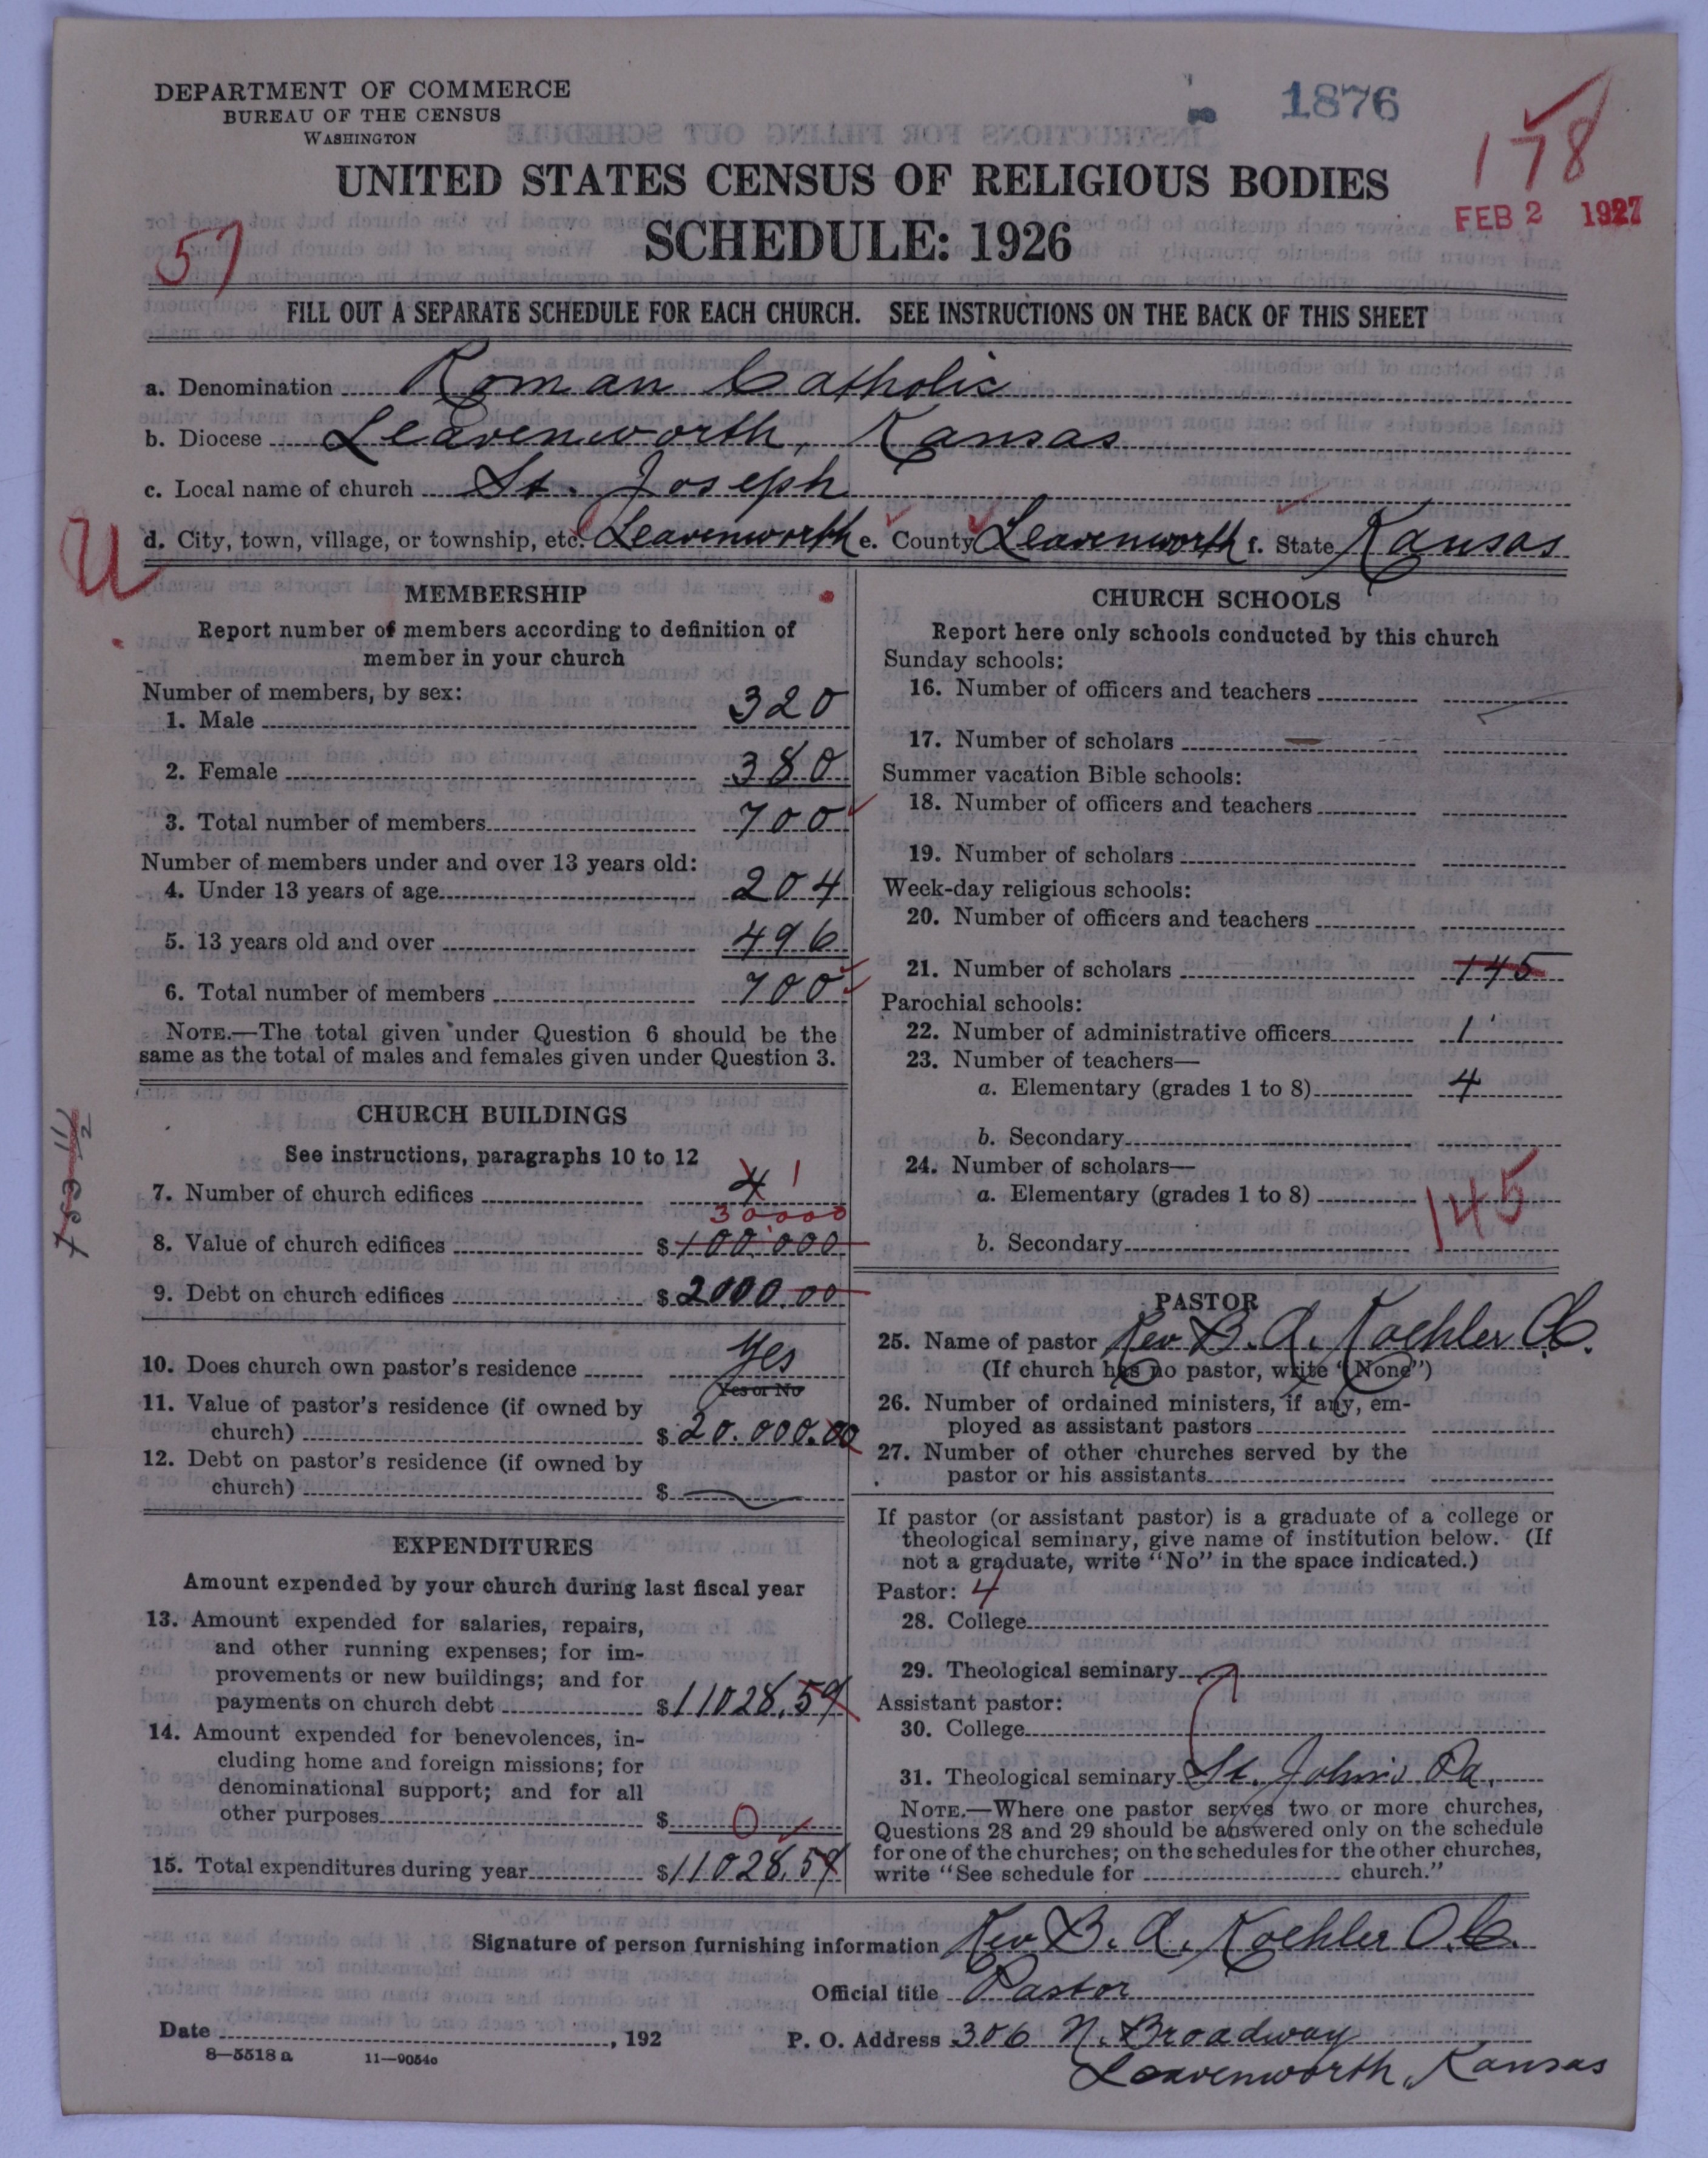 DEPARTMENT OF COMMERCE
BUREAU OF THE CENSUS
WASHINGTON
1876
178
FEB 2 1927
UNITED STATES CENSUS OF RELIGIOUS BODIES
SCHEDULE: 1926
57
FILL OUT A SEPARATE SCHEDULE FOR EACH CHURCH. SEE INSTRUCTIONS ON THE BACK OF THIS SHEET
a. Denomination Roman Catholic
b. Diocese Leavenworth, Kansas
c. Local name of church St. Joseph
d. City, town, village, or township, etc. Leavenworth e. County Leavenworth f. State Kansas
U
MEMBERSHIP
Report number of members according to definition of
member in your church
Number of members, by sex:
1. Male 320
2. Female 380
3. Total number of members 700
Number of members under and over 13 years old:
4. Under 13 years of age 204
5. 13 years old and over 496
6. Total number of members 700
NOTE.—The total given under Question 6 should be the
same as the total of males and females given under Question 3.
CHURCH BUILDINGS
See instructions, paragraphs 10 to 12
7. Number of church edifices 4 1
30000
8. Value of church edifices $100.000
9. Debt on church edifices $2000.00
10. Does church own pastor's residence Yes
Yes or No
11. Value of pastor's residence (if owned by
church) $20.000.00
12. Debt on pastor's residence (if owned by
church) $
EXPENDITURES
Amount expended by your church during last fiscal year
13. Amount expended for salaries, repairs,
and other running expenses; for im-
provements or new buildings; and for
payments on church debt $11028.59
14. Amount expended for benevolences, in-
cluding home and foreign missions; for
denominational support; and for all
other purposes $ 0
15. Total expenditures during year $11028.59
CHURCH SCHOOLS
Report here only schools conducted by this church
Sunday schools:
16. Number of officers and teachers
17. Number of scholars
Summer vacation Bible schools:
18. Number of officers and teachers
19. Number of scholars
Week-day religious schools:
20. Number of officers and teachers
21. Number of scholars 145
Parochial schools:
22. Number of administrative officers 1
23. Number of teachers—
a. Elementary (grades 1 to 8) 4
b. Secondary
24. Number of scholars—
a. Elementary (grades 1 to 8) 145
b. Secondary
PASTOR
25. Name of pastor Rev B. A. Koehler O.C.
(If church has no pastor, write "None")
26. Number of ordained ministers, if any, em-
ployed as assistant pastors
27. Number of other churches served by the
pastor or his assistants
If pastor (or assistant pastor) is a graduate of a college or
theological seminary, give name of institution below. (If
not a graduate, write "No" in the space indicated.)
Pastor: 4
28. College
29. Theological seminary
Assistant pastor:
30. College
31. Theological seminary St. John's Pa.
NOTE.—Where one pastor serves two or more churches,
Questions 28 and 29 should be answered only on the schedule
for one of the churches; on the schedules for the other churches,
write "See schedule for church."
Signature of person furnishing information Rev B. A. Koehler O.C.
Official title Pastor
Date , 192
P. O. Address 306 N. Broadway
Leavenworth, Kansas
8—5518 a 11—9054c